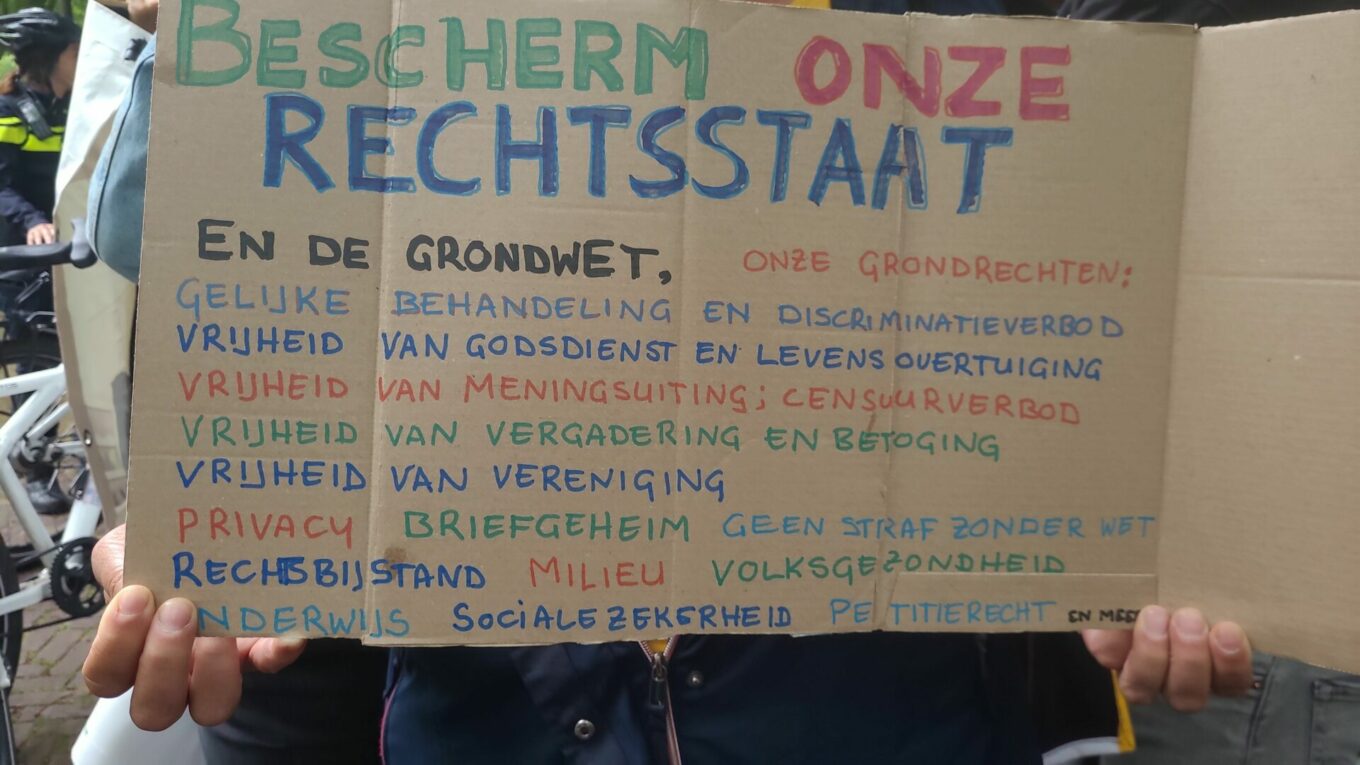 BESCHERM ONZE
RECHTSSTAAT
EN DE GRONDWET, ONZE GRONDRECHTEN:
GELIJKE BEHANDELING EN DISCRIMINATIEVERBOD
VRIJHEID VAN GODSDIENST EN LEVENSOVERTUIGING
VRIJHEID VAN MENINGSUITING; CENSUURVERBOD
VRIJHEID VAN VERGADERING EN BETOGING
VRIJHEID VAN VERENIGING
PRIVACY BRIEFGEHEIM GEEN STRAF ZONDER WET
RECHTSBIJSTAND MILIEU VOLKSGEZONDHEID
NDERWIJS SOCIALE ZEKERHEID PETITIERECHT EN MEE